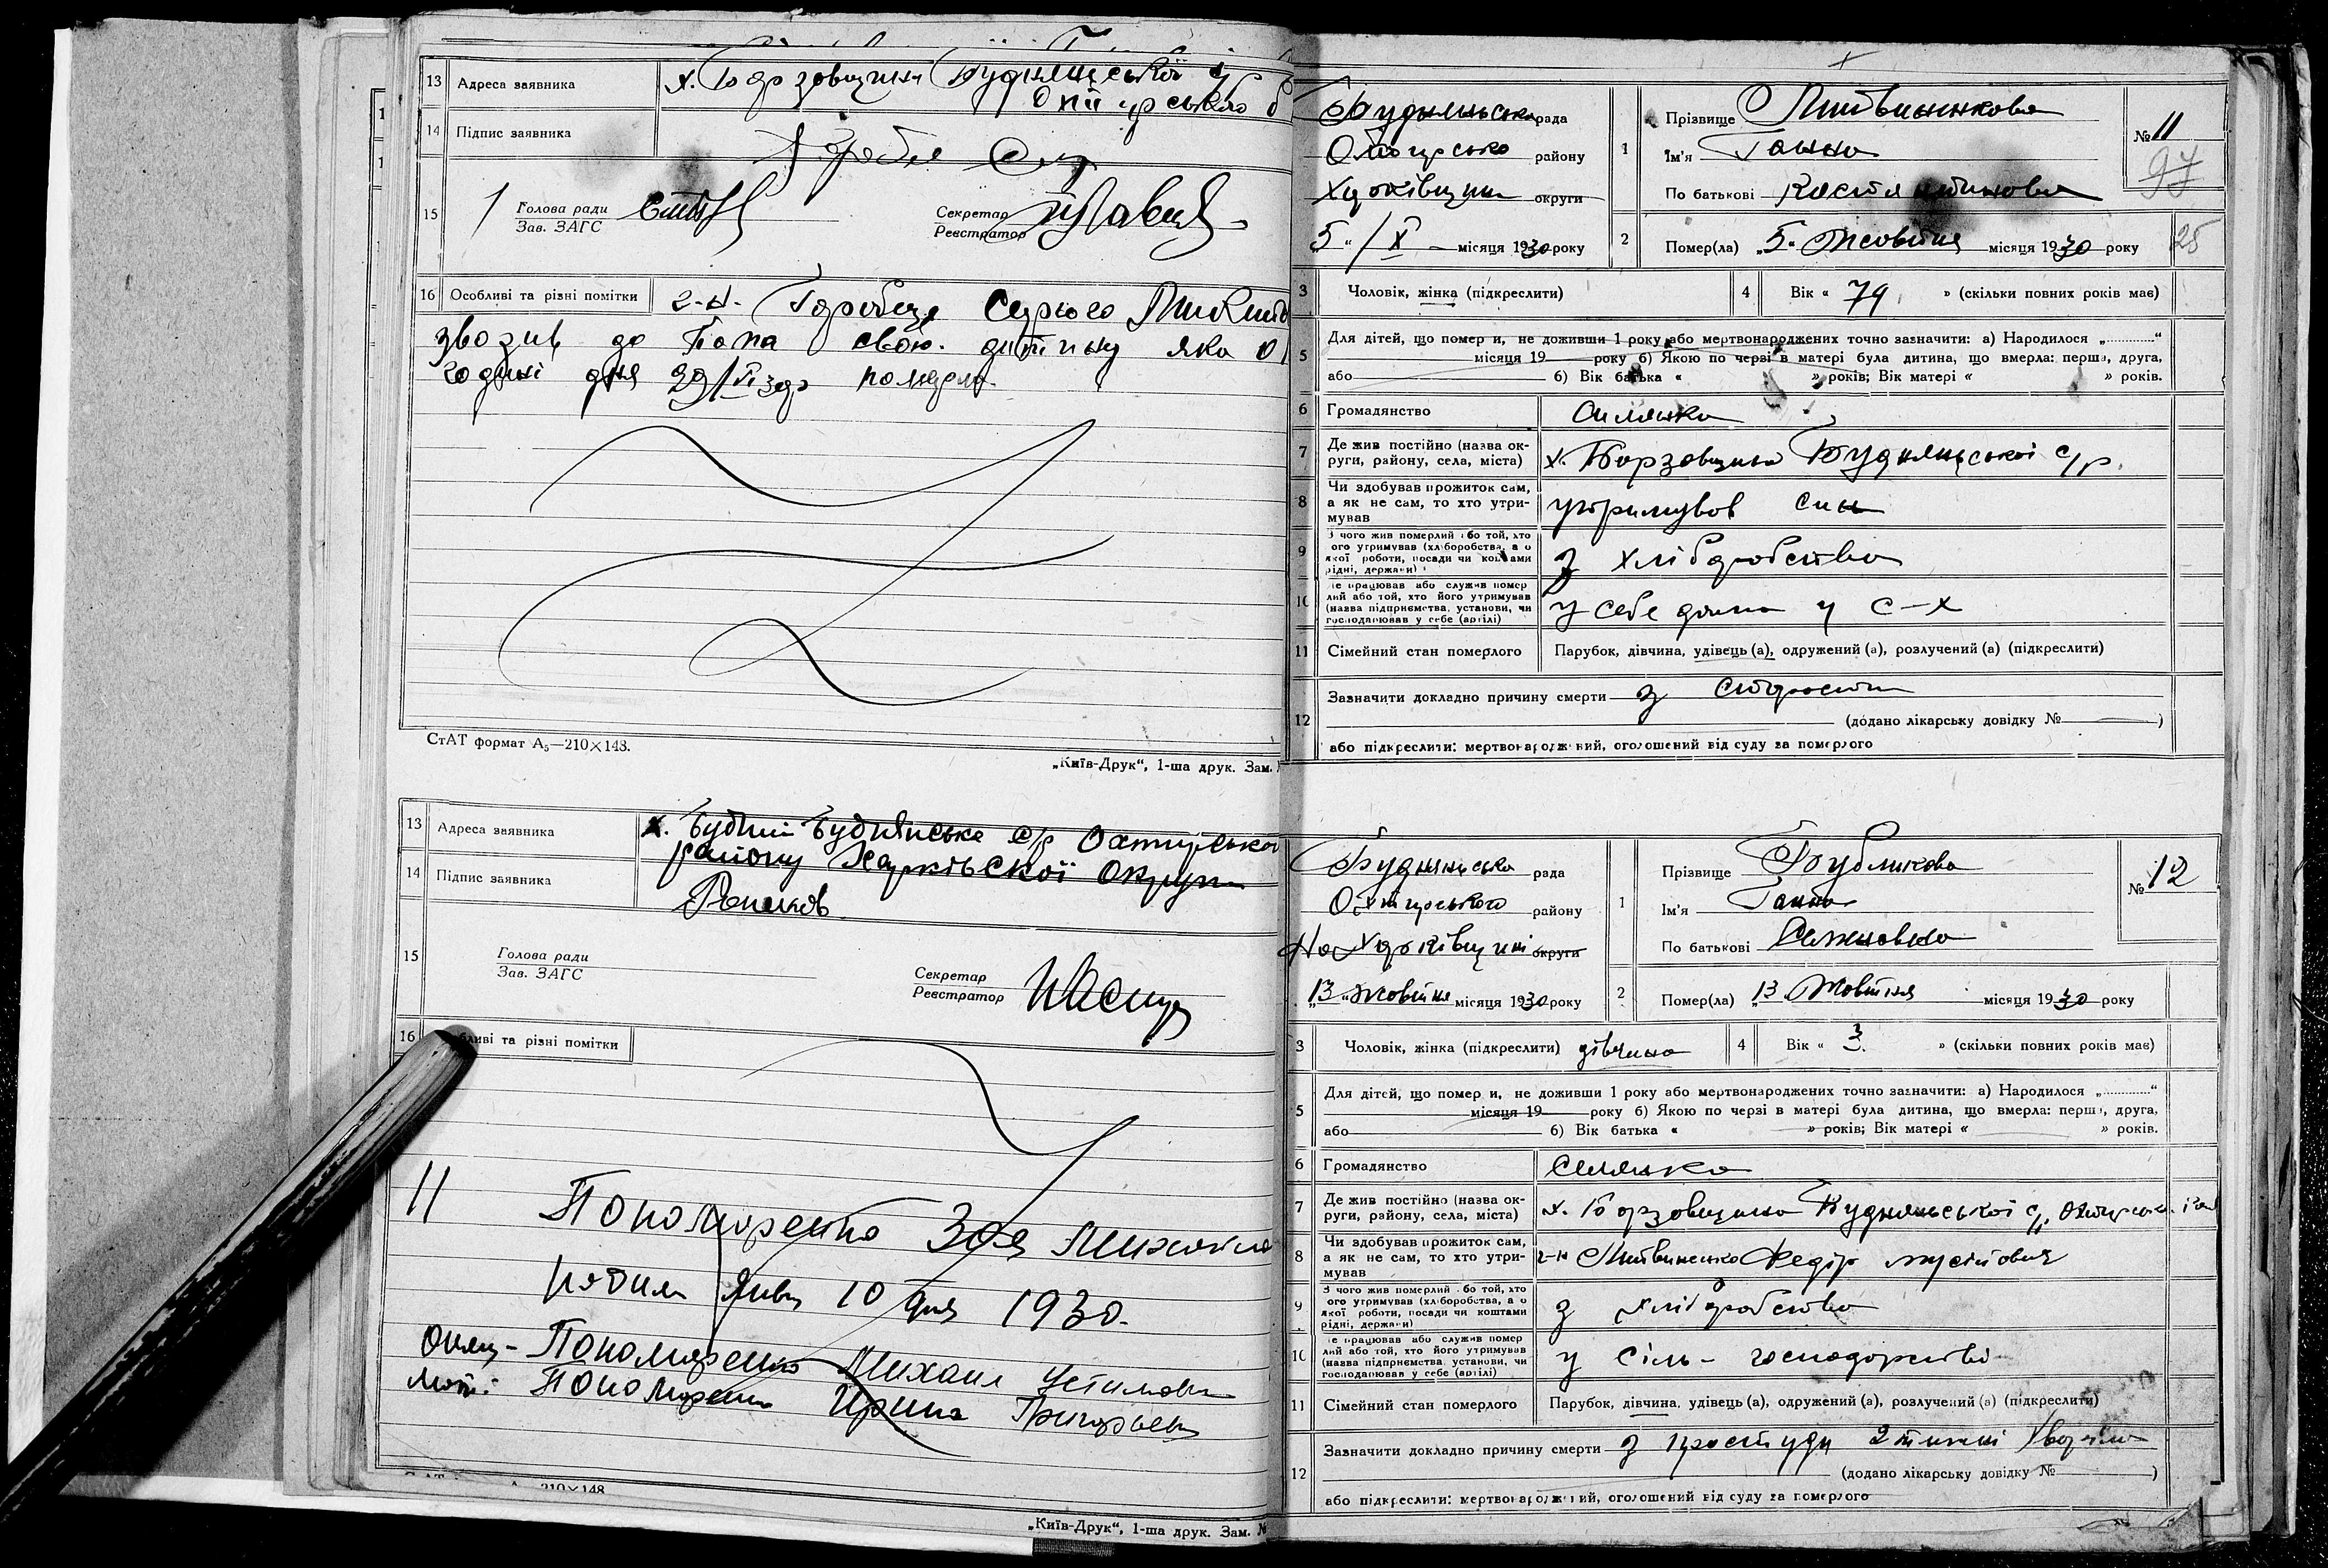 13 Адреса заявника х. Борзовщини Будням ської с/р
Охтирського
14 Підпис заявника
15 Голова ради
Зав. ЗАГС
Секретар
Реєстратор
16 Особливі та різні помітки г-н. Горобець
звозив до Попа свою дитину яка
години дня помєрла.
СтАТ формат А₅—210×148.
„Київ-Друк“, 1-ша друк. Зам.
13 Адреса заявника х. Будний Буднянська с/р Охтирської
району Харківської Округи
14 Підпис заявника
15 Голова ради
Зав. ЗАГС
Секретар
Реєстратор
16 та різні помітки
11 Пономаренко Зоя Михайло
10 дня 1930.
Пономаренко Михаил Устимович
Мати: Пономаренко Ирина Григорьевн
210×148
„Київ-Друк“, 1-ша друк. Зам. №
Буднянська рада
Охтирсько району
Харківщини округи
5 „ / X – місяця 1930 року
1 Прізвище Литвиненкова
Ім'я Ганна
По батькові Костянтинова
№ 11
97
2 Помер(ла) „5. Жовтня місяця 1930 року
25
3 Чоловік, жінка (підкреслити) 4 Вік « 74 » (скільки повних років має)
5 Для дітей, що помер и, не доживши 1 року або мертвонароджених точно зазначити: а) Народилося „..........“
місяця 19 року б) Якою по черзі в матері була дитина, що вмерла: перша, друга,
або б) Вік батька « » років; Вік матері « » років.
6 Громадянство селянка
7 Де жив постійно (назва ок-
руги, району, села, міста) х. Борзовщина Буднянської с/р.
8 Чи здобував прожиток сам,
а як не сам, то хто утри-
мував утримував син
9 З чого жив померлий або той, хто
його утримував (хліборобства, а о
якої роботи, посади чи коштами
рідні, держави) з хліборобства
10 Де працював або служив помер
лий або той, хто його утримував
(назва підприємства, установи, чи
господарював у себе (артілі) у себе дома у С–Х
11 Сімейний стан померлого Парубок, дівчина, удівець (а), одружений (а), розлучений (а) (підкреслити)
12 Зазначити докладно причину смерти з старости
(додано лікарську довідку № )
або підкреслити: мертвонароджений, оголошений від суду за померлого
Буднянська рада
Охтирського району
На Харківщині округи
„13 „ Жовтня місяця 1930 року
1 Прізвище Бубликова
Ім'я Ганна
По батькові Семеновна
№ 12
2 Помер(ла) „13. Жовтня місяця 1930 року
3 Чоловік, жінка (підкреслити) дівчина 4 Вік « 3 » (скільки повних років має)
5 Для дітей, що помер и, не доживши 1 року або мертвонароджених точно зазначити: а) Народилося „..........“
місяця 19 року б) Якою по черзі в матері була дитина, що вмерла: перша, друга,
або б) Вік батька « » років; Вік матері « » років.
6 Громадянство Селянка
7 Де жив постійно (назва ок-
руги, району, села, міста) х. Борзовщина Буднянської с/р. Охтирськ. рай
8 Чи здобував прожиток сам,
а як не сам, то хто утри-
мував г-н Литвиненко Федір мусійович
9 З чого жив померлий або той, хто
його утримував (хліборобства, а о
якої роботи, посади чи коштами
рідні, держави) з хліборобства
10 Де працював або служив помер
лий або той, хто його утримував
(назва підприємства, установи, чи
господарював у себе (артілі) у сіль-господарстві
11 Сімейний стан померлого Парубок, дівчина, удівець (а), одружений (а), розлучений (а) (підкреслити)
12 Зазначити докладно причину смерти з простуди 2 тижні хворіла
(додано лікарську довідку № )
або підкреслити: мертвонароджений, оголошений від суду за померлого